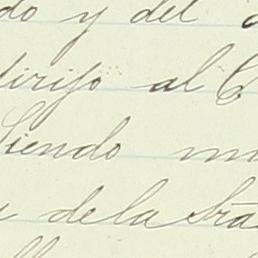 do y del
dirijo al C
Siendo m
de la Sra